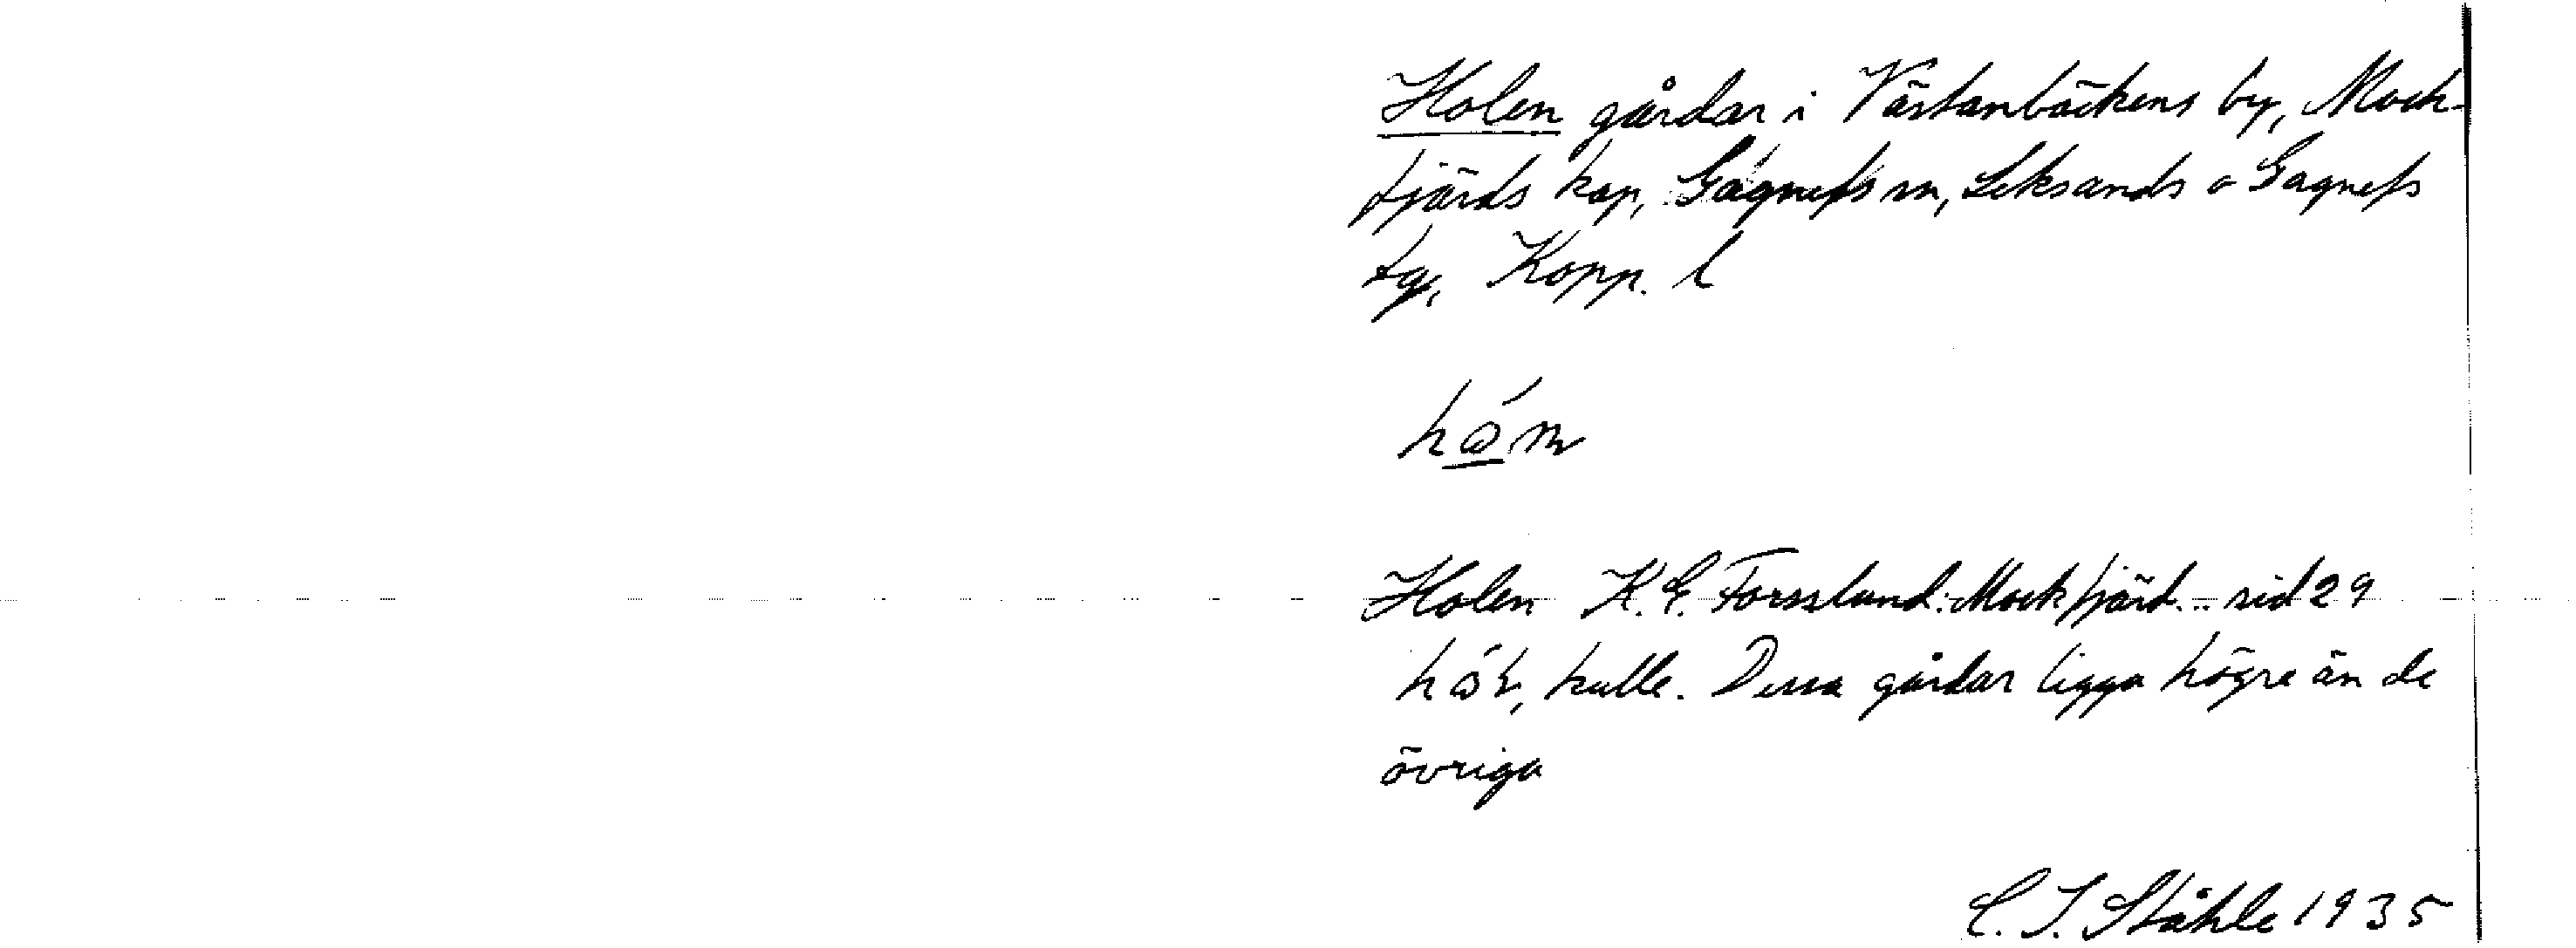 Holen gårdar i Västanbäckens by, Mock-
fjärds kap, Gagnefs sn, Leksands o Gagnefs
tg, Kopp. l
Holen K. E. Forsslund: Mockfjärd... sid 29
kulle. Dessa gårdar ligga högre än de
övriga
C. I. Ståhle 1935